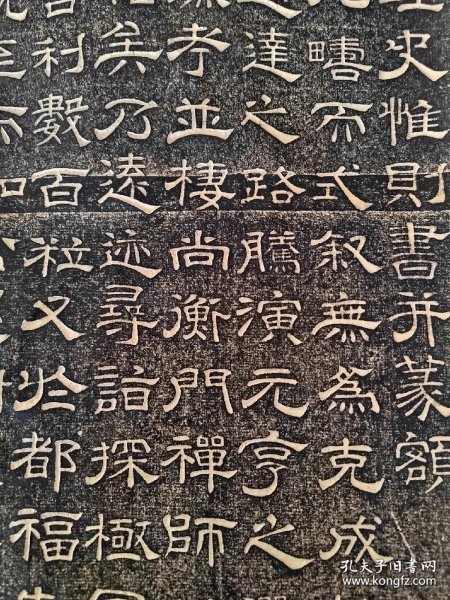 史惟則書并篆額
疇而式叙無為克成
達之路騰演元亨之
考並棲尚衡門禪師
矣乃遠迹尋詣探極
利數百粒又於都福
孔夫子旧书网
www.kongfz.com